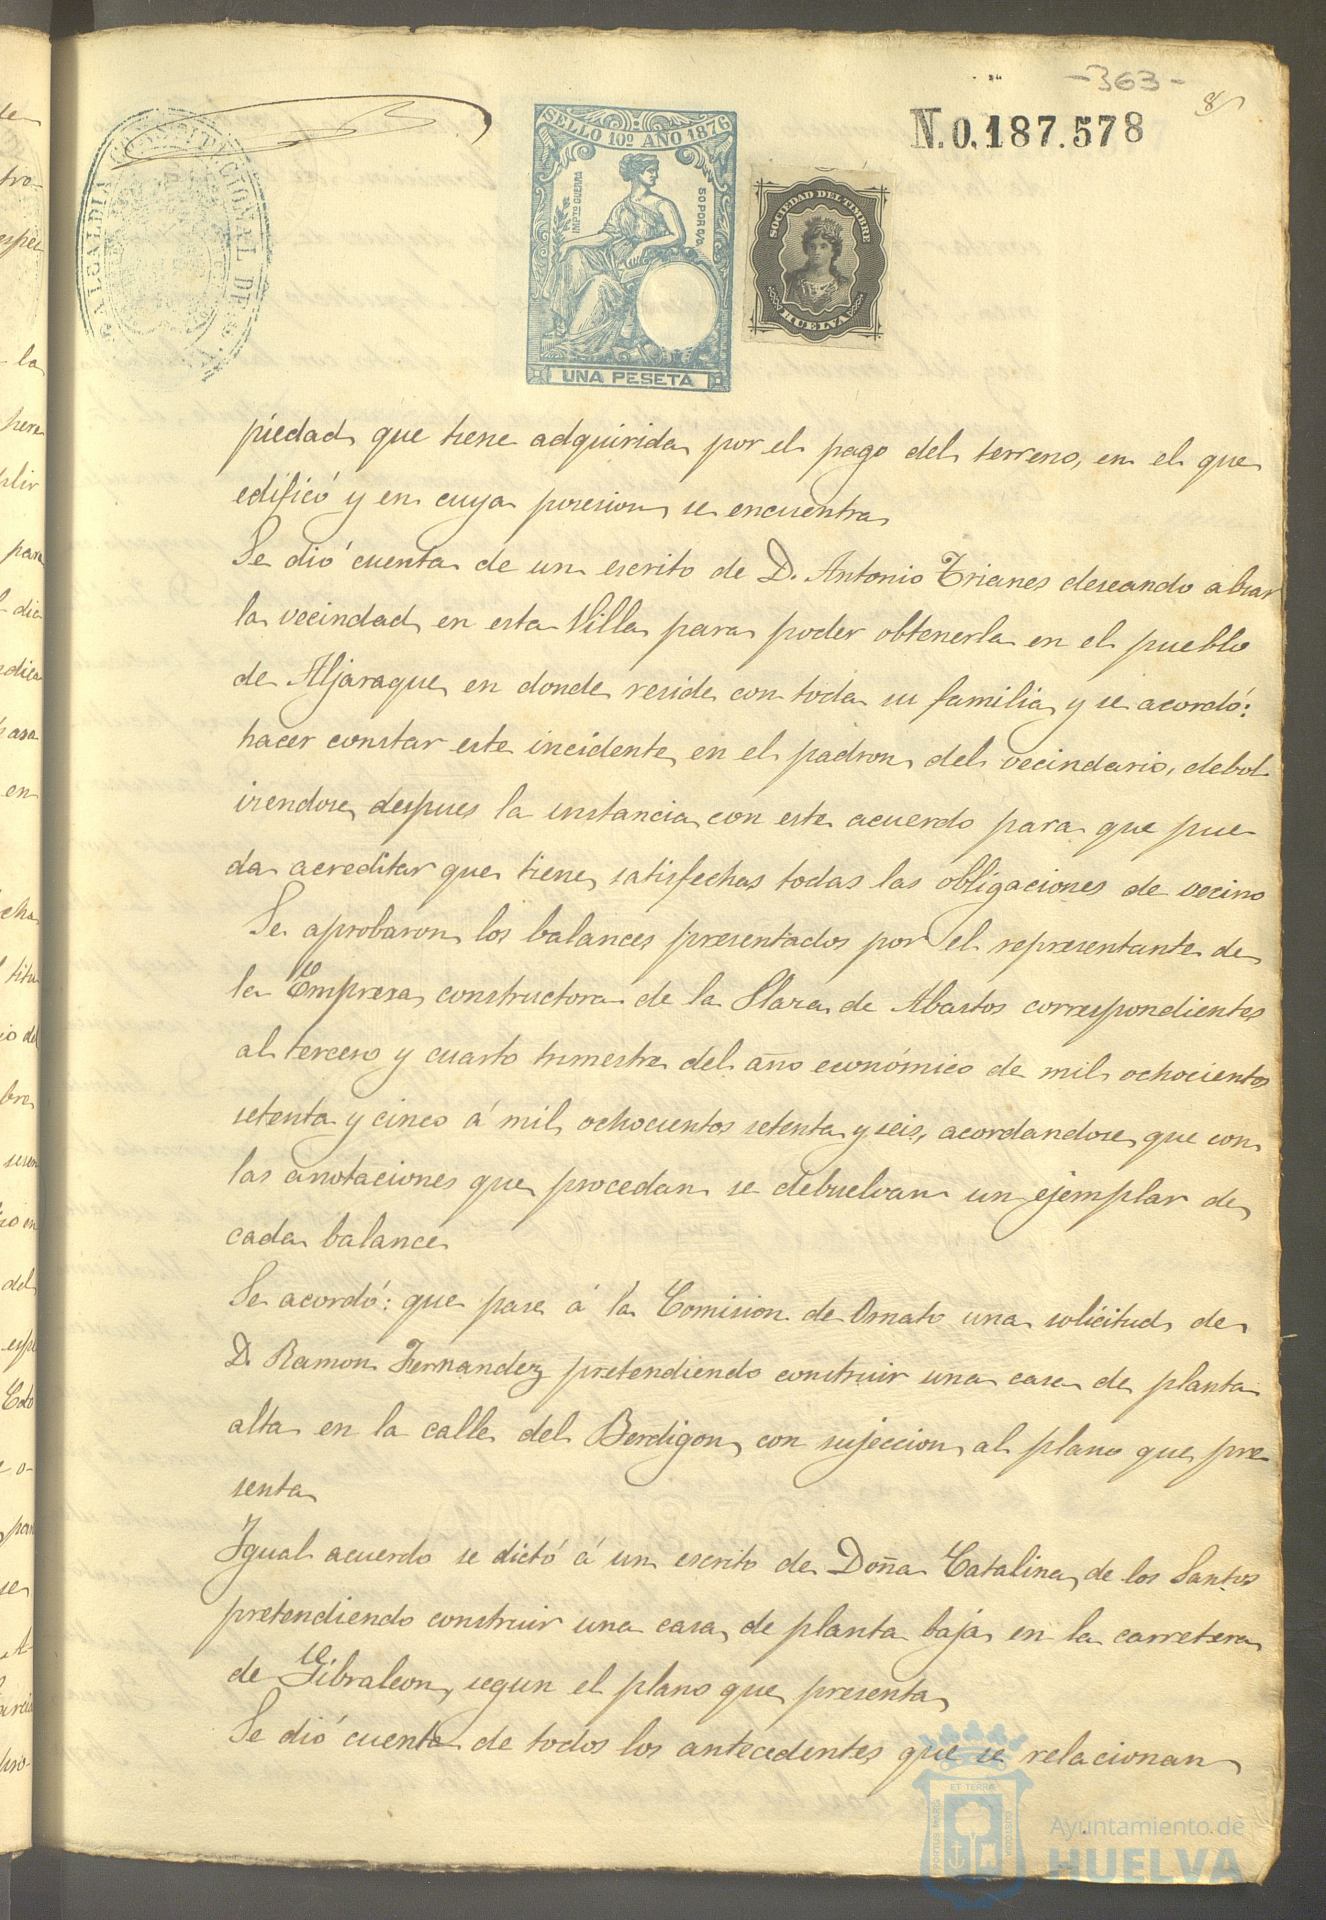 -363-
8
N.0.187.578
ALCALDIA CONSTITUCIONAL DE
SELLO 10º AÑO 1876
IMPTO GUERRA
50 POR O/O
UNA PESETA
SOCIEDAD DEL TIMBRE
HUELVA
piedad que tiene adquirida por el pago del terreno, en el que
edificó y en cuya posesion se encuentra
Se dió cuenta de un escrito de D. Antonio Trianes deseando alzar
la vecindad en esta Villa para poder obtenerla en el pueblo
de Aljaraque, en donde reside con toda su familia y se acordó:
hacer constar este incidente en el padron del vecindario, debol
viendose despues la instancia con este acuerdo para que pue
da acreditar que tiene satisfechas todas las obligaciones de vecino
Se aprobaron los balances presentados por el representante de
la Empresa constructora de la Plaza de Abastos correspondientes
al tercero y cuarto trimestre del año económico de mil ochocientos
setenta y cinco á mil ochocientos setenta y seis, acordandose que con
las anotaciones que procedan se debuelvan un ejemplar de
cada balance
Se acordó: que pase á la Comision de Ornato una solicitud de
D. Ramon Fernandez pretendiendo construir una casa de planta
alta en la calle del Berdigon, con sujeccion al plano que pre
senta
Igual acuerdo se dictó á un escrito de Doña Catalina de los Santos
pretendiendo construir una casa de planta baja en la carretera
de Gibraleon, segun el plano que presenta
Se dió cuenta de todos los antecedentes que se relacionan
Ayuntamiento de
HUELVA